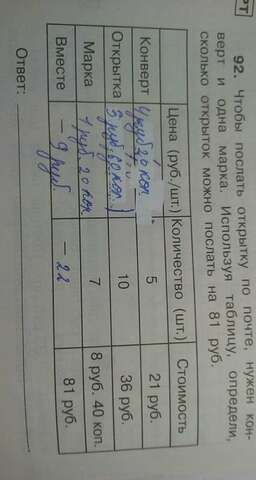 РТ
92. Чтобы послать открытку по почте, нужен кон-
верт и одна марка. Используя таблицу, определи,
сколько открыток можно послать на 81 руб.
Цена (руб./шт.) Количество (шт.) Стоимость
Конверт 4 руб 20 коп. 5 21 руб.
Открытка 3 руб. 60 коп. 10 36 руб.
Марка 1 руб. 20 коп. 7 8 руб. 40 коп.
Вместе — 9 руб. — 22 81 руб.
Ответ: